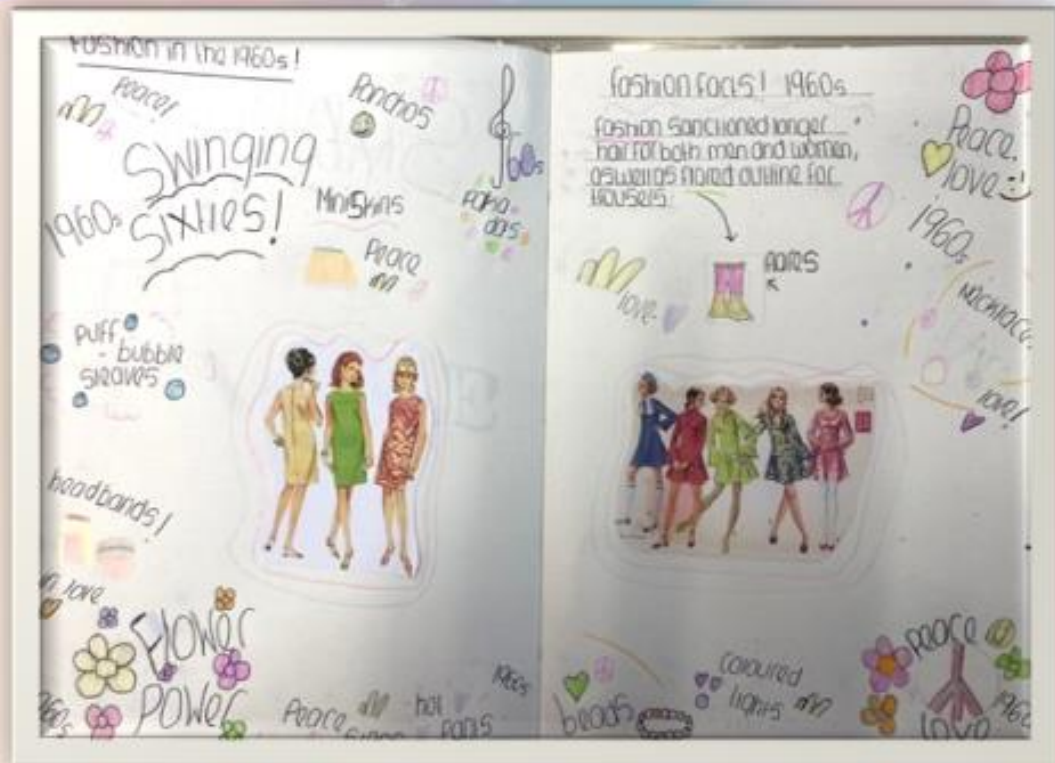 Fashion in the 1960s!
Peace!
Ponchos
Swinging
Sixties!
1960s
Miniskirts
60s
Polka
dots
Peace
Puff
bubble
sleeves
headbands!
love
Flower
Power
Peace
hot
pants
1960s
Fashion facts! 1960s
Fashion sanctioned longer
hair for both men and women,
as well as flared outline for
trousers
flares
love
Peace,
love :)
1960s
Necklace
love!
beads
Coloured
lights
peace
love